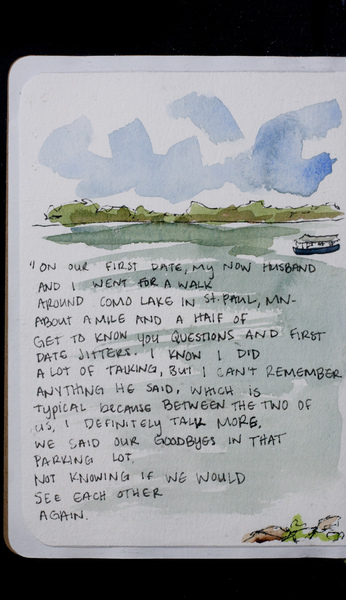 "ON OUR FIRST DATE, MY NOW HUSBAND
AND I WENT FOR A WALK
AROUND COMO LAKE IN ST. PAUL, MN-
ABOUT A MILE AND A HALF OF
GET TO KNOW YOU QUESTIONS AND FIRST
DATE JITTERS. I KNOW I DID
A LOT OF TALKING, BUT I CAN'T REMEMBER
ANYTHING HE SAID, WHICH IS
TYPICAL BECAUSE BETWEEN THE TWO OF
US, I DEFINITELY TALK MORE.
WE SAID OUR GOODBYES IN THAT
PARKING LOT,
NOT KNOWING IF WE WOULD
SEE EACH OTHER
AGAIN.